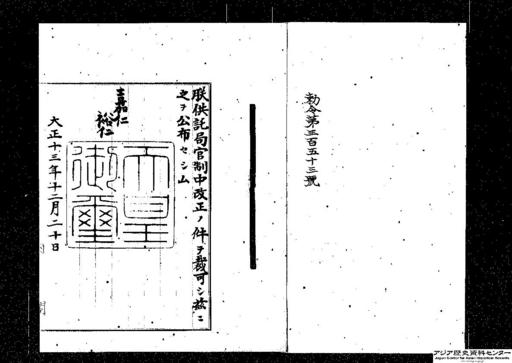 勅令第三百五十三號
朕供託局官制中改正ノ件ヲ裁可シ茲ニ
之ヲ公布セシム
嘉仁
裕仁
天皇
御璽
大正十三年十二月二十日
アジア歴史資料センター
Japan Center for Asian Historical Records